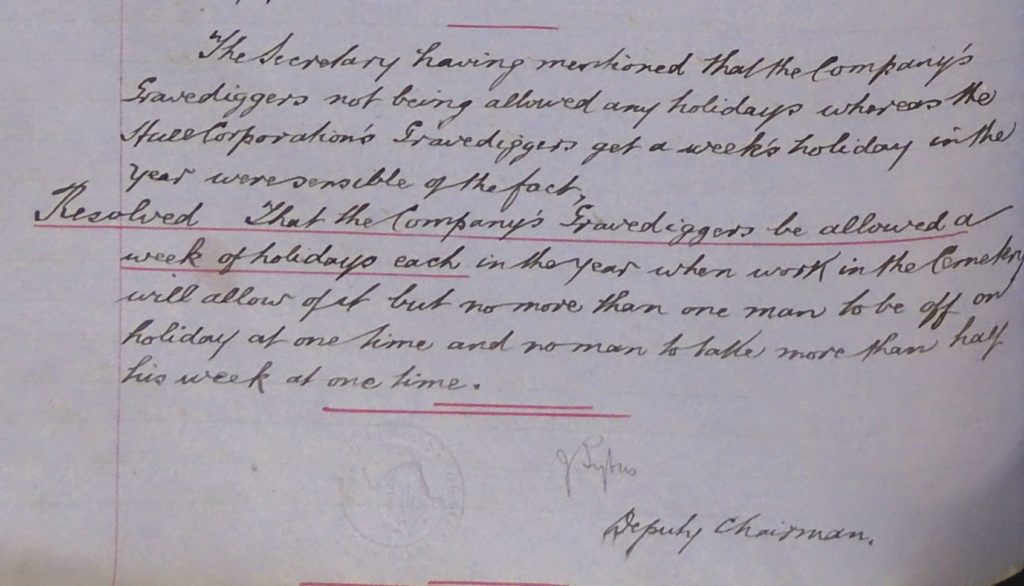 The Secretary having mentioned that the Company's
Gravediggers not being allowed any holidays whereas the
Hull Corporation's Gravediggers get a week's holiday in the
year were sensible of the fact,
Resolved That the Company's Gravediggers be allowed a
week of holidays each in the year when work in the Cemetery
will allow of it but no more than one man to be off on
holiday at one time and no man to take more than half
his week at one time.
Deputy Chairman.